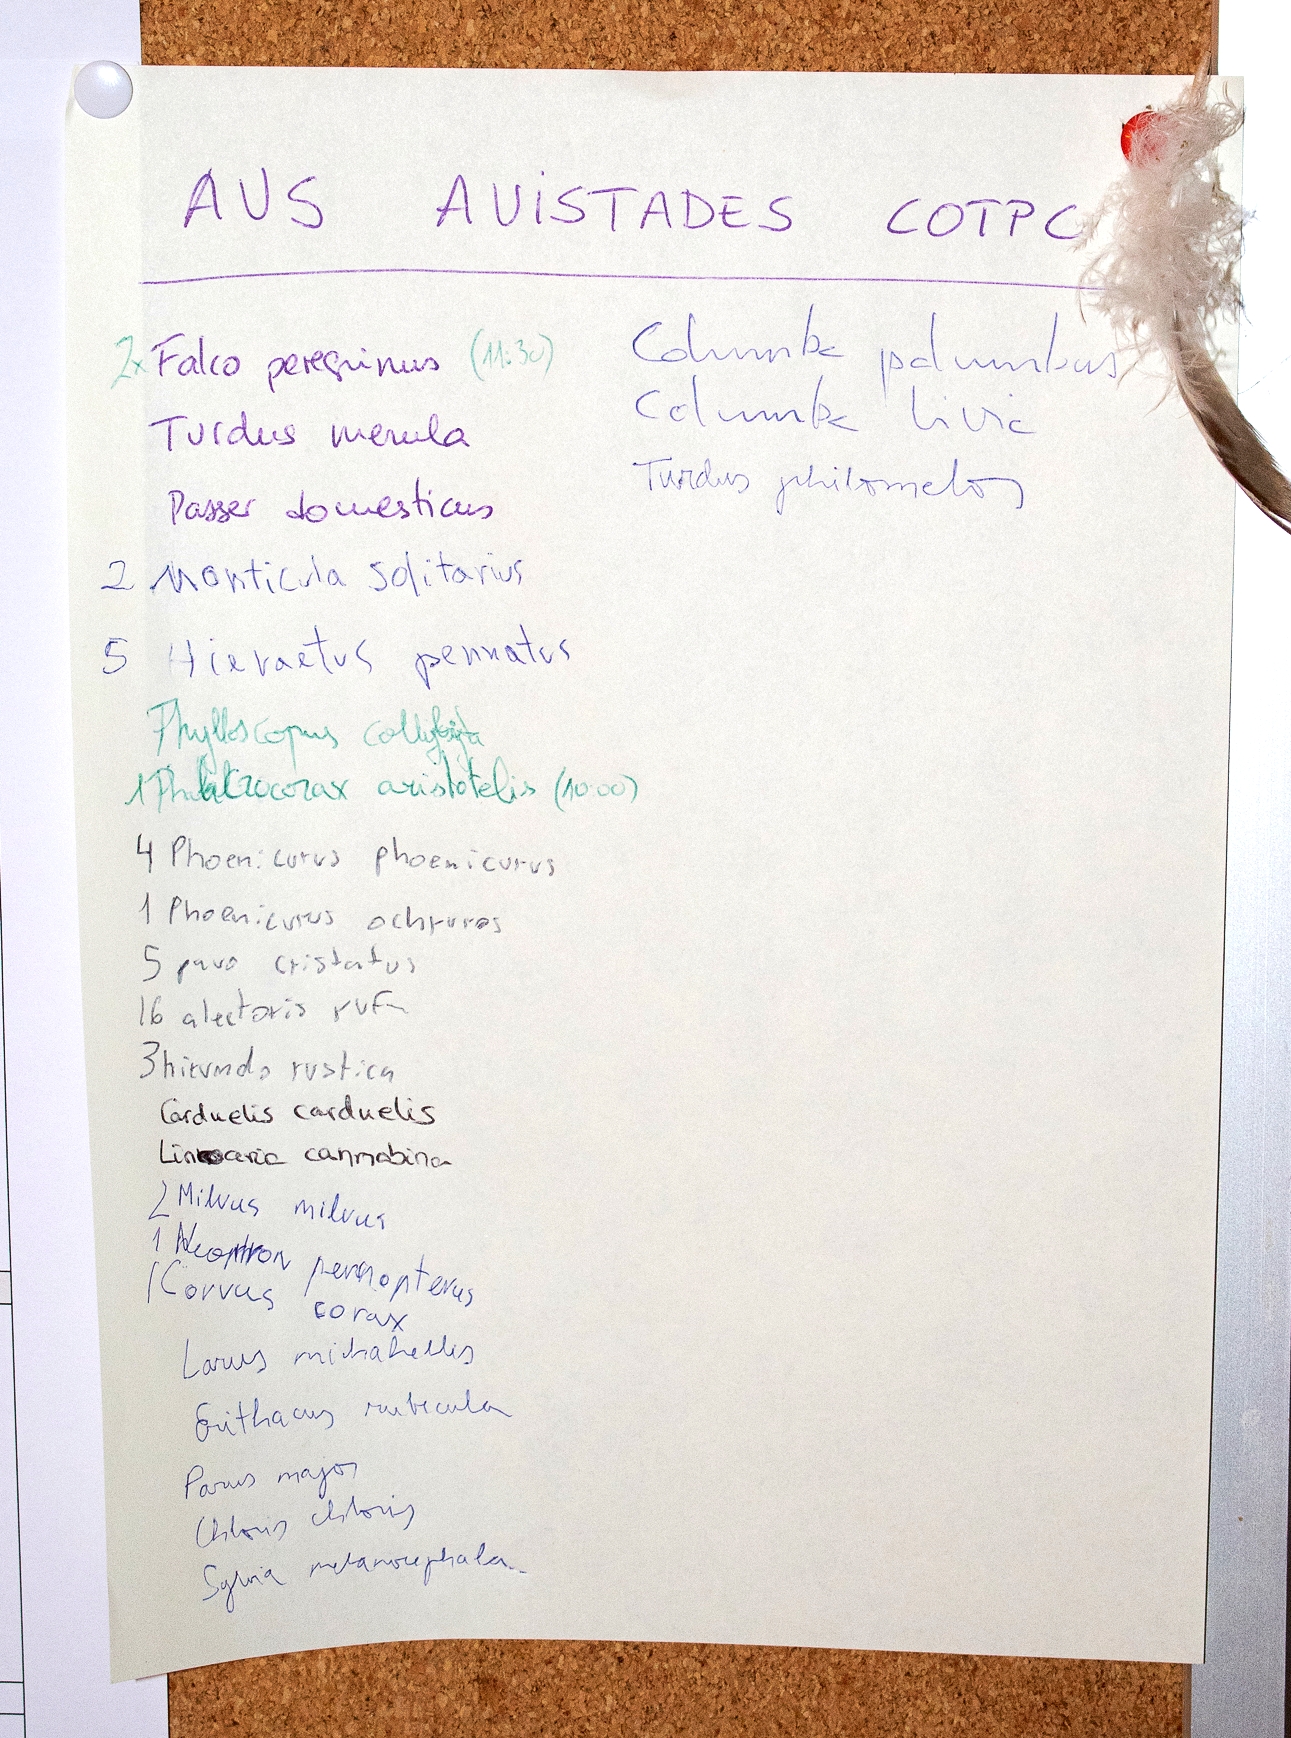 AUS AVISTADES COTPC
2x Falco peregrinus (11:30)
Turdus merula
Passer domesticus
2 Monticula solitarius
5 Hieraetus pennatus
Phylloscopus collybita
1 Phalacrocorax aristotelis (10:00)
4 Phoenicurus phoenicurus
1 Phoenicurus ochruros
5 pavo cristatus
16 alectoris rufa
3 hirundo rustica
Carduelis carduelis
Linaria cannabina
2 Milvus milvus
1 Neophron percnopterus
1 Corvus corax
Larus michahellis
Erithacus rubecula
Parus major
Chloris chloris
Sylvia melanocephala
Columba palumbus
Columba livia
Turdus philomelos